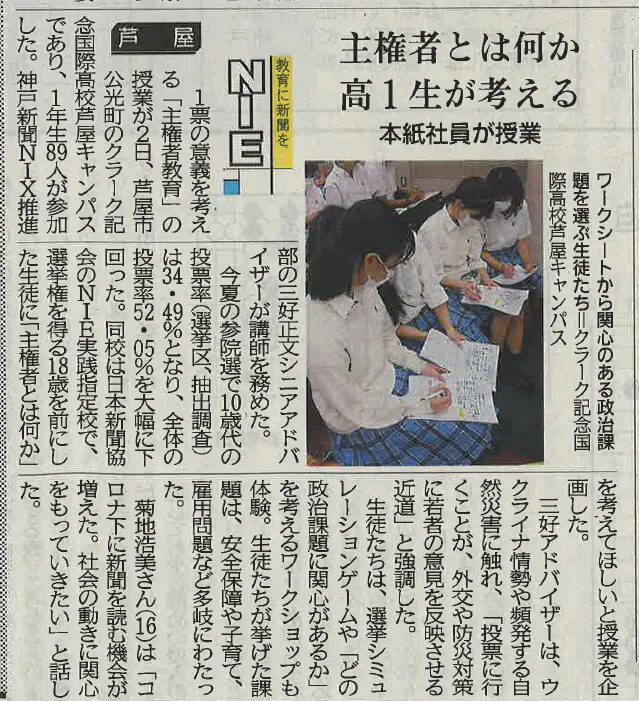 主権者とは何か
高1生が考える
本紙社員が授業
教育に新聞を
NIE
芦屋
ワークシートから関心のある政治課
題を選ぶ生徒たち=クラーク記念国
際高校芦屋キャンパス
1票の意義を考え
る「主権者教育」の
授業が2日、芦屋市
公光町のクラーク記
念国際高校芦屋キャンパス
であり、1年生89人が参加
した。神戸新聞NIX推進
部の三好正文シニアアドバ
イザーが講師を務めた。
今夏の参院選で10歳代の
投票率(選挙区、抽出調査)
は34・49%となり、全体の
投票率52・05%を大幅に下
回った。同校は日本新聞協
会のNIE実践指定校で、
選挙権を得る18歳を前にし
た生徒に「主権者とは何か」
を考えてほしいと授業を企
画した。
三好アドバイザーは、ウ
クライナ情勢や頻発する自
然災害に触れ、「投票に行
くことが、外交や防災対策
に若者の意見を反映させる
近道」と強調した。
生徒たちは、選挙シミュ
レーションゲームや「どの
政治課題に関心があるか」
を考えるワークショップも
体験。生徒たちが挙げた課
題は、安全保障や子育て、
雇用問題など多岐にわたっ
た。
菊地浩美さん(16)は「コ
ロナ下に新聞を読む機会が
増えた。社会の動きに関心
をもっていきたい」と話し
た。